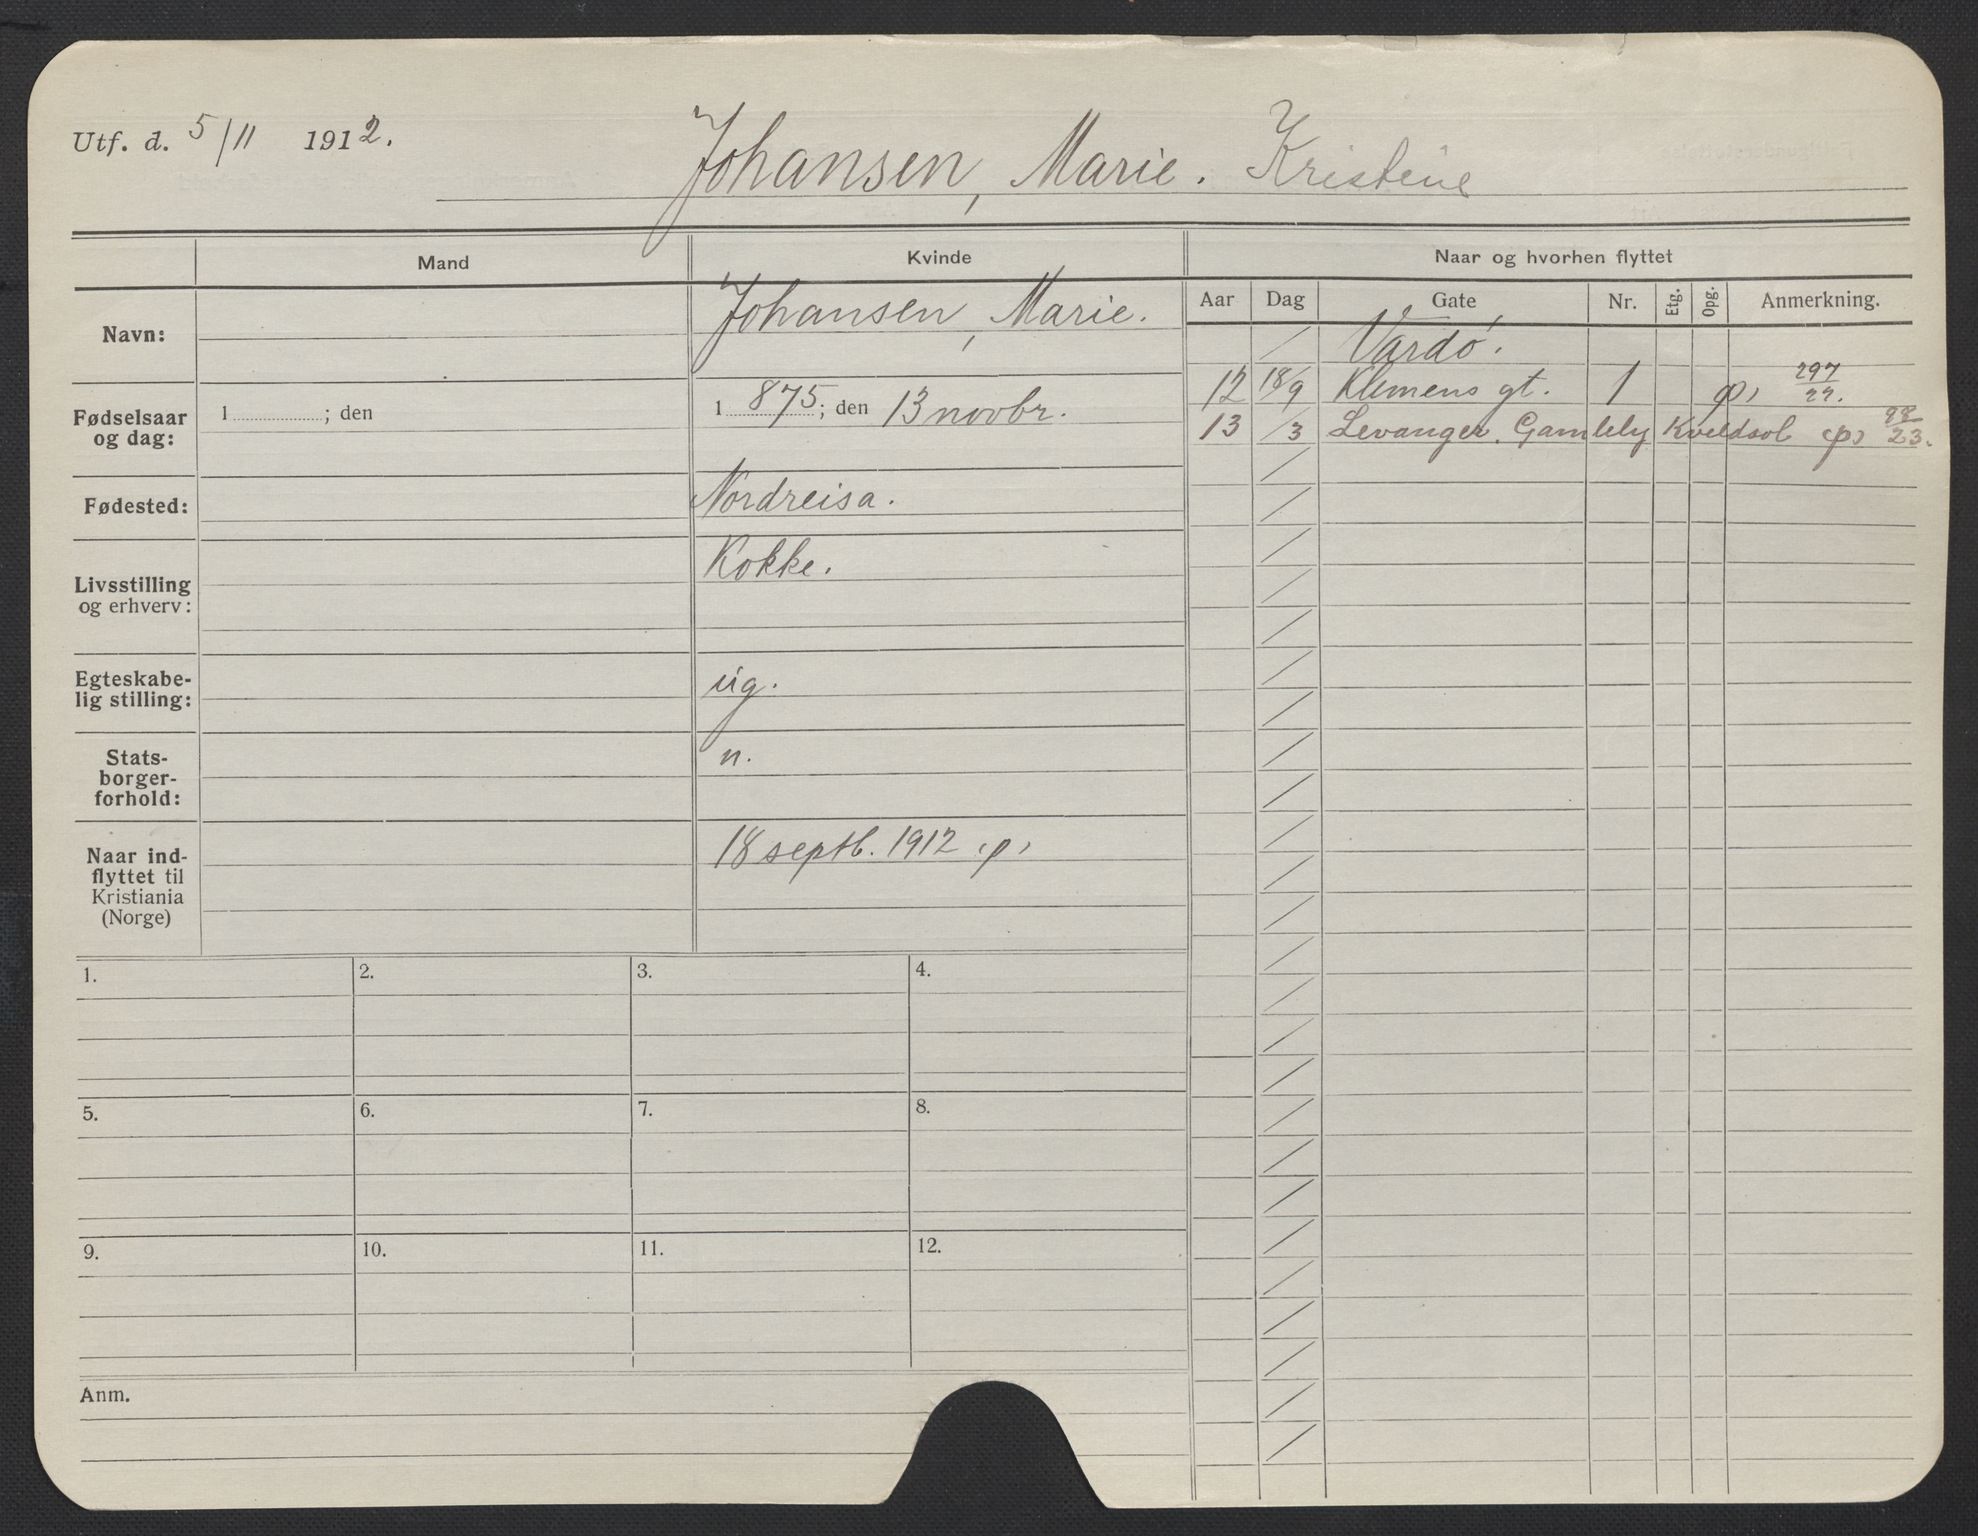 Utf. d. 5/11 1912.
Johansen, Marie. Kristine
Mand
Kvinde
Naar og hvorhen flyttet
Navn:
Johansen, Marie.
Fødselsaar og dag:
1 ; den
1 875; den 13 novbr.
Fødested:
Nordreisa.
Livsstilling og erhverv:
Kokke.
Egteskabe-
lig stilling:
ug.
Stats-
borger-
forhold:
n.
Naar ind-
flyttet til
Kristiania
(Norge)
18 septb. 1912 (p)
Aar Dag Gate Nr. Etg. Opg. Anmerkning.
Vardö.
12 18/9 Klemens gt. 1 (p) 297/22.
13 /3 Levanger. Gamleby Kveldsol (p) 98/23.
1. 2. 3. 4.
5. 6. 7. 8.
9. 10. 11. 12.
Anm.